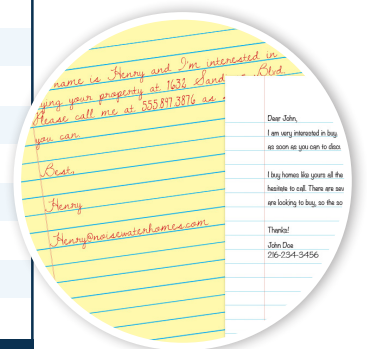 name is Henry and I'm interested in
ying your property at 1632 Sand Blvd.
Please call me at 555.897.3876 as
you can.
Best,
Henry
Henry@noisewaterhomes.com
Dear John,
I am very interested in buy
as soon as you can to discu
I buy homes like yours all the
hesitate to call. There are sev
are looking to buy, so the so
Thanks!
John Doe
216-234-3456